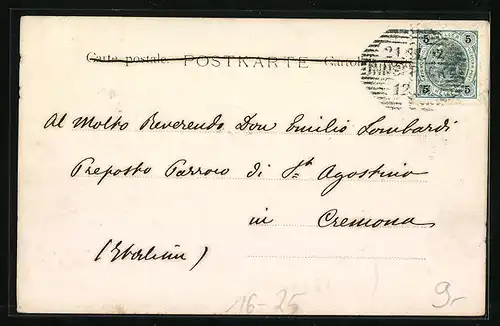 Carte postale. POSTKARTE Cartol
5 5
5 5
21
12
Al Molto Reverendo Don Emilio Lombardi
Preposto Parroco di St Agostino
in Cremona
(Italien)
16-25 9,-